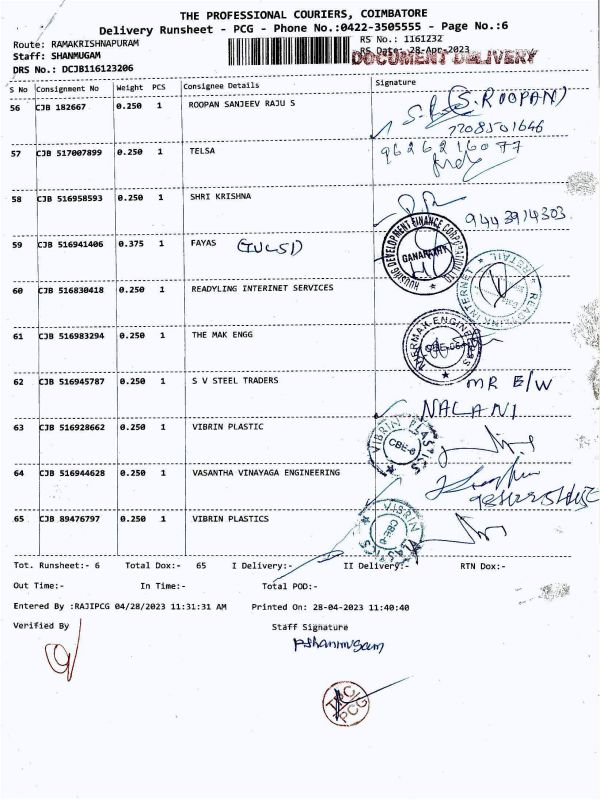 THE PROFESSIONAL COURIERS, COIMBATORE
Delivery Runsheet - PCG - Phone No.:0422-3505555 - Page No.:6
Route: RAMAKRISHNAPURAM
RS No.: 1161232
Staff: SHANMUGAM
RS Date: 28-Apr-2023
DOCUMENT DELIVERY
DRS No.: DCJB116123206
S No Consignment No Weight PCS Consignee Details Signature
56 CJB 182667 0.250 1 ROOPAN SANJEEV RAJU S
(S.ROOPAN)
7708501646
57 CJB 517007899 0.250 1 TELSA
9626216077
58 CJB 516958593 0.250 1 SHRI KRISHNA
9443914303
59 CJB 516941406 0.375 1 FAYAS (TULSI)
HOUSING DEVELOPMENT FINANCE CORPORATION LTD
GANAPATHY
60 CJB 516830418 0.250 1 READYLING INTERINET SERVICES
61 CJB 516983294 0.250 1 THE MAK ENGG
62 CJB 516945787 0.250 1 S V STEEL TRADERS
MR E/W
NALANI
63 CJB 516928662 0.250 1 VIBRIN PLASTIC
VIBRIN PLASTICS
CBE-6
64 CJB 516944628 0.250 1 VASANTHA VINAYAGA ENGINEERING
65 CJB 89476797 0.250 1 VIBRIN PLASTICS
VIBRIN PLASTICS
CBE-6
Tot. Runsheet:- 6 Total Dox:- 65 I Delivery:- II Delivery:- RTN Dox:-
Out Time:- In Time:- Total POD:-
Entered By :RAJIPCG 04/28/2023 11:31:31 AM Printed On: 28-04-2023 11:40:40
Verified By Staff Signature
P.Shanmugam
TPC
PCG